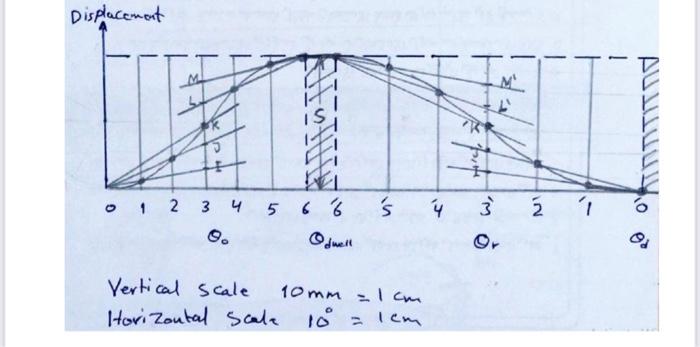 Displacement
M M'
L L'
S
K 'K
J J'
I I'
0 1 2 3 4 5 6 '6 '5 '4 3' '2 '1 '0
θo θdwell θr θd
Vertical scale 10mm = 1 cm
Horizontal Scale 10° = 1 cm